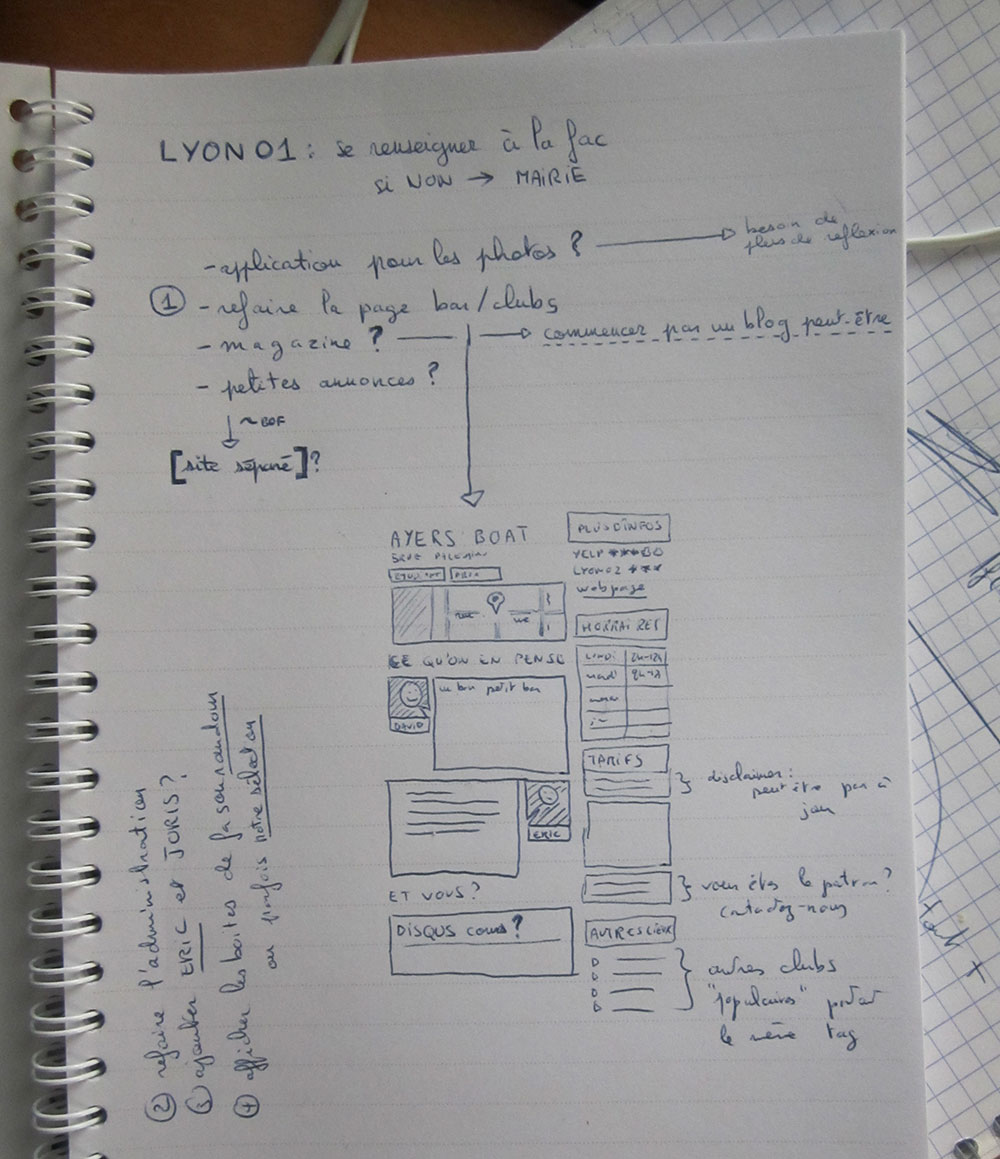 LYON01 : se renseigner à la fac
si NON → MAIRIE
- application pour les photos ?
besoin de
plus de reflexion
① - refaire la page bar/clubs
- magazine ?
commencer par un blog peut-être
- petites annonces ?
~ BOF
[site séparé]?
AYERS BOAT
PLUS D'INFOS
YELP ***
Lyon02 ***
webpage
HORRAIRES
CE QU'ON EN PENSE
LUNDI
mardi
un bon petit bar
DAVID
TARIFS
disclaimer :
peut être pas à
jour
ERIC
vous êtes le patron ?
contactez-nous
ET VOUS ?
DISQUS ?
AUTRES LIEUX
autres clubs
"populaires"
le même tag
② refaire l'administration
③ ajouter ERIC et JORIS ?
④ afficher les boites de façon random
ou parfois notre sélection